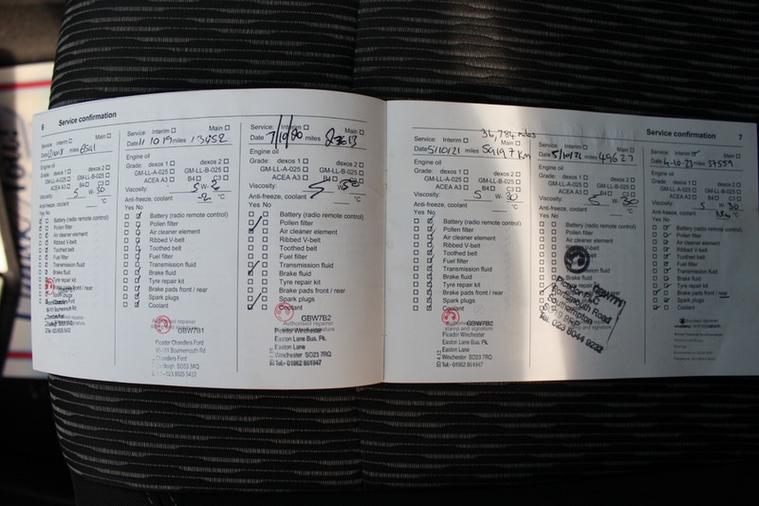 6
Service confirmation
Service: Interim ☐ Main ☐
miles 8541
Engine oil
Grade: dexos 1 ☐ dexos 2 ☐
GM-LL-A-025 ☐ GM-LL-B-025 ☐
ACEA A3 ☐ B4 ☐ C3 ☐
Viscosity: 5 W- 30
Anti-freeze, coolant °C
Yes No
Battery (radio remote control)
Pollen filter
Air cleaner element
Ribbed V-belt
Toothed belt
Fuel filter
Transmission fluid
Brake fluid
Tyre repair kit
Brake pads front / rear
Spark plugs
Service: Interim ☐ Main ☐
Date 11 10 19 miles 13452
Engine oil
Grade: dexos 1 ☐ dexos 2 ☐
GM-LL-A-025 ☐ GM-LL-B-025 ☐
ACEA A3 ☐ B4 ☐ C3 ☐
Viscosity: 5 W-
Anti-freeze, coolant °C
Yes No
Battery (radio remote control)
Pollen filter
Air cleaner element
Ribbed V-belt
Toothed belt
Fuel filter
Transmission fluid
Brake fluid
Tyre repair kit
Brake pads front / rear
Spark plugs
Coolant
GBW7B1
Picador Chandlers Ford
Bournemouth Rd
Chandlers Ford
SO53 3AQ
Service: Interim ☐ Main ☐
Date 7/10/20 miles
Engine oil
Grade: dexos 1 ☐ dexos 2 ☐
GM-LL-A-025 ☐ GM-LL-B-025 ☐
ACEA A3 ☐ B4 ☐ C3 ☐
Viscosity: 5 W-
Anti-freeze, coolant °C
Yes No
Battery (radio remote control)
Pollen filter
Air cleaner element
Ribbed V-belt
Toothed belt
Fuel filter
Transmission fluid
Brake fluid
Tyre repair kit
Brake pads front / rear
Spark plugs
Coolant
GBW7B2
Picador Winchester
Easton Lane Bus. Pk.
Easton Lane
Winchester SO23 7RQ
Tel: 01962 861947
Service confirmation 7
36,784 miles
Service: Interim ☐ Main ☐
Date 5/10/21 59197 Km
Engine oil
Grade: dexos 1 ☐ dexos 2 ☐
GM-LL-A-025 ☐ GM-LL-B-025 ☐
ACEA A3 ☐ B4 ☐ C3 ☐
Viscosity: 5 W- 30
Anti-freeze, coolant °C
Yes No
Battery (radio remote control)
Pollen filter
Air cleaner element
Ribbed V-belt
Toothed belt
Fuel filter
Transmission fluid
Brake fluid
Tyre repair kit
Brake pads front / rear
Spark plugs
Coolant
GBW7B2
Picador Winchester
Easton Lane Bus. Pk.
Easton Lane
Winchester SO23 7RQ
Tel: 01962 861947
Service: Interim ☐ Main ☐
miles 49627
Engine oil
Grade: dexos 1 ☐ dexos 2 ☐
GM-LL-A-025 ☐ GM-LL-B-025 ☐
ACEA A3 ☐ B4 ☐ C3 ☐
Viscosity: 5 W- 30
Anti-freeze, coolant °C
Yes No
Battery (radio remote control)
Pollen filter
Air cleaner element
Ribbed V-belt
Toothed belt
Fuel filter
Transmission fluid
Brake fluid
Tyre repair kit
Brake pads front / rear
Spark plugs
Coolant
GBW7T1
Portsmouth Road
Southampton
Service: Interim Main ☐
Date 4-10-23 miles 57559
Engine oil
Grade: dexos 1 ☐ dexos 2 ☐
GM-LL-A-025 ☐ GM-LL-B-025 ☐
ACEA A3 ☐ B4 ☐ C3 ☐
Viscosity: 5 W- 30
Anti-freeze, coolant °C
Yes No
Battery (radio remote control)
Pollen filter
Air cleaner element
Ribbed V-belt
Toothed belt
Fuel filter
Transmission fluid
Brake fluid
Tyre repair kit
Brake pads front / rear
Spark plugs
Coolant